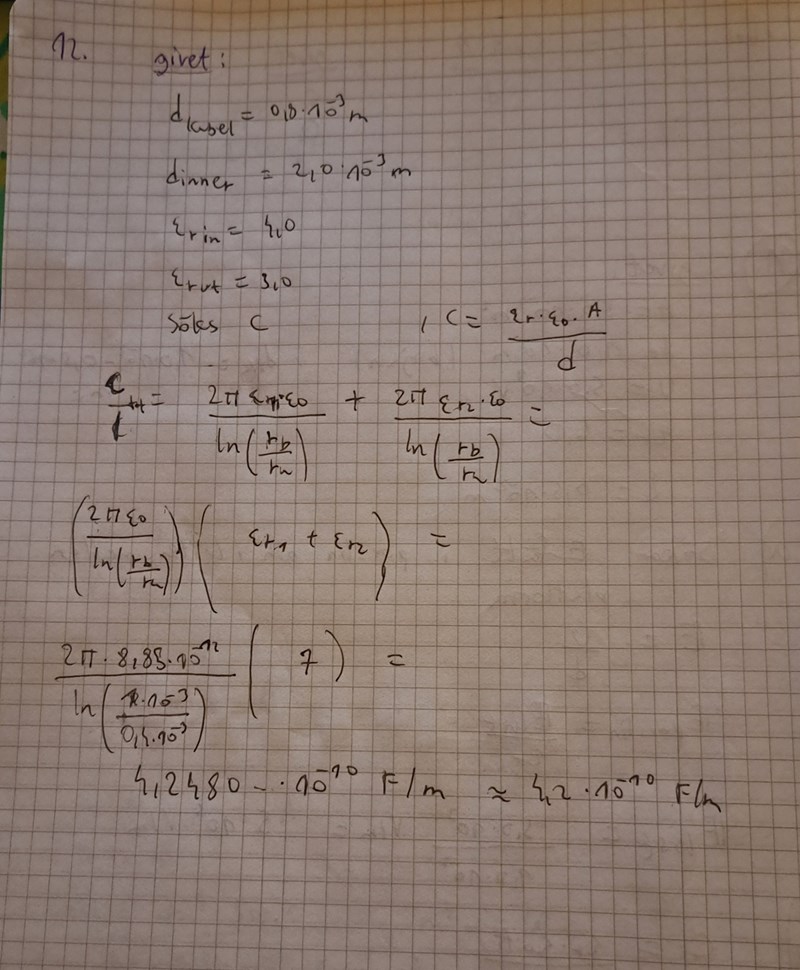 12. givet:
d_kabel = 0,8·10⁻³ m
d_inner = 2,0·10⁻³ m
ε_r in = 4,0
ε_r ut = 3,0
Söks C , C = (εr·ε0·A)/d
C/l tot = (2π εr1·ε0)/(ln(rb/ra)) + (2π εr2·ε0)/(ln(rb/ra)) =
((2π ε0)/(ln(rb/ra))) (εr1 + εr2) =
(2π·8,85·10⁻¹²)/(ln((1·10⁻³)/(0,4·10⁻³))) (7) =
4,2480...·10⁻¹⁰ F/m ≈ 4,2·10⁻¹⁰ F/m